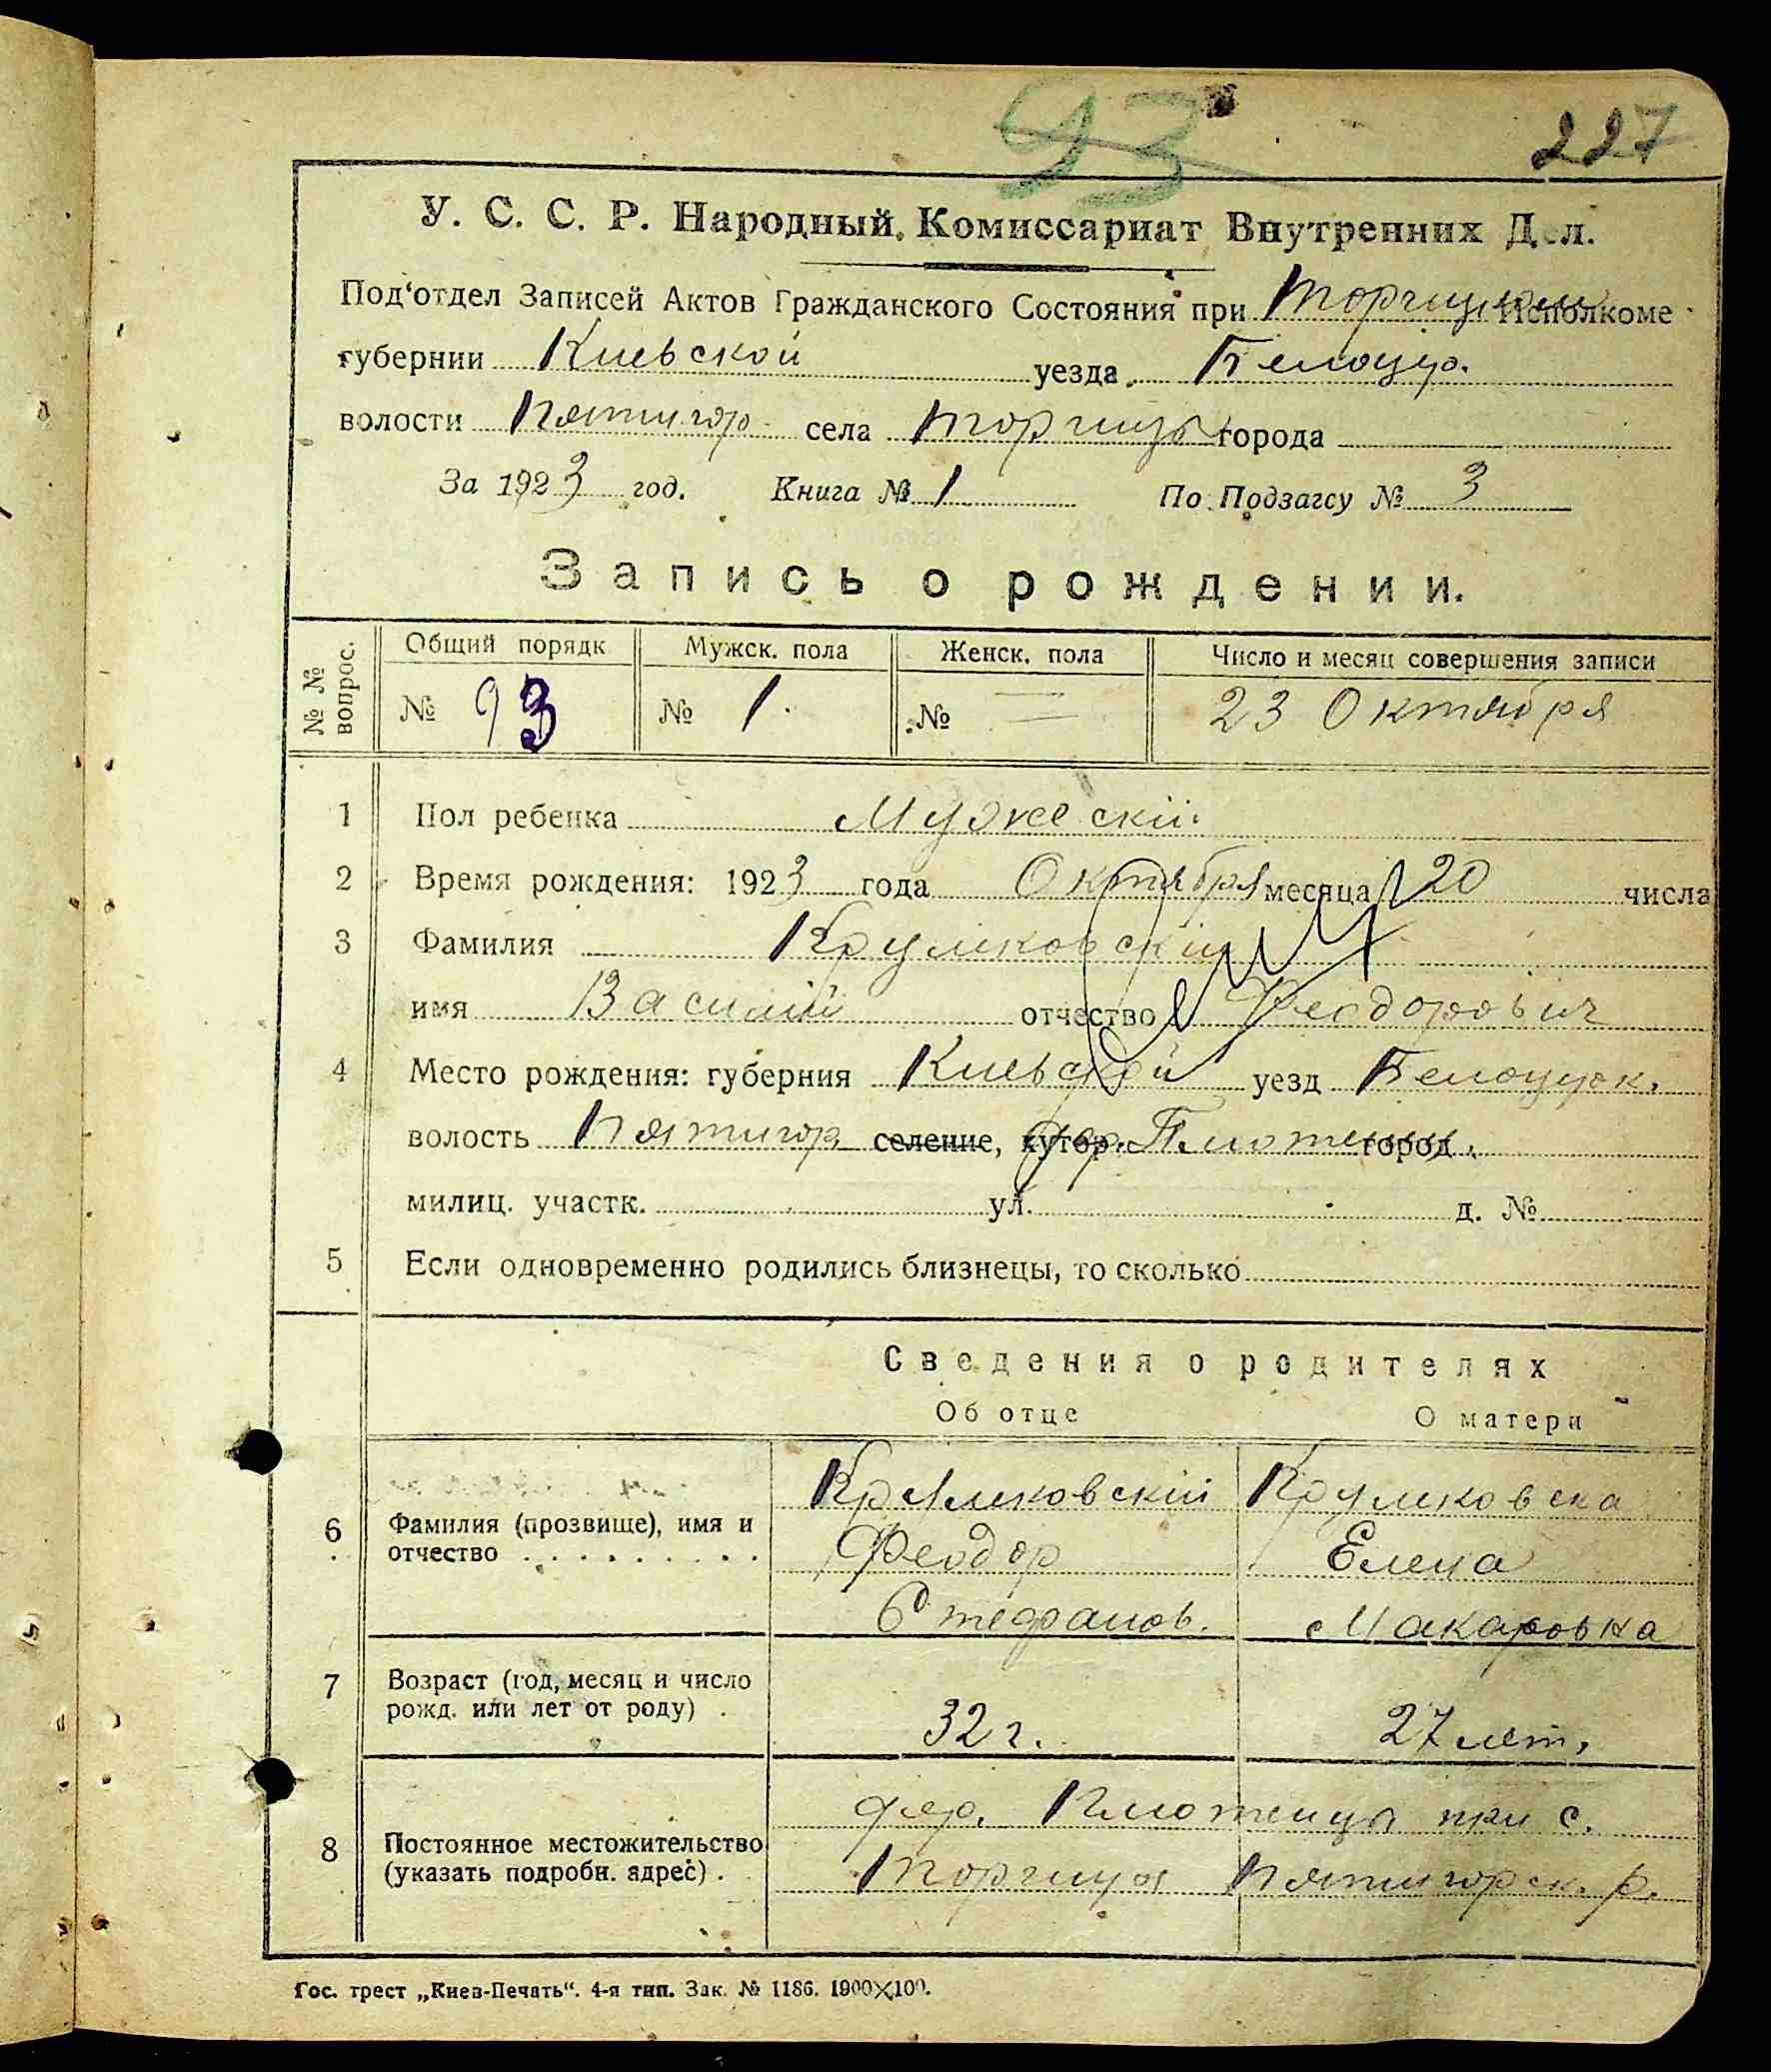 93
227
У. С. С. Р. Народный Комиссариат Внутренних Дел.
Под'отдел Записей Актов Гражданского Состояния при Торчицком Исполкоме
губернии Киевской уезда Белоцер.
волости Пятигор села Торчицы города
За 1923 год. Книга № 1 По Подзагсу № 3
Запись о рождении.
№ № вопрос. Общий порядк Мужск. пола Женск. пола Число и месяц совершения записи
№ 93 № 1. № — 23 Октября
1 Пол ребенка Мужескій.
2 Время рождения: 1923 года Октября месяца 20 числа
3 Фамилия Крумковскій
имя Василій отчество Феодорович
4 Место рождения: губерния Киевской уезд Белоцерк.
волость Пятигор селение, хутор. город
милиц. участк. ул. д. №
5 Если одновременно родились близнецы, то сколько
Сведения о родителях
Об отце О матери
6 Фамилия (прозвище), имя и отчество
Крумковскій Крумковска
Феодор Елена
Стефанов. Макаровна
7 Возраст (год, месяц и число рожд. или лет от роду) .
32 г. 27 лет.
8 Постоянное местожительство (указать подробн. адрес) .
дер. при с.
Торчица Пятигорск. р.
Гос. трест „Киев-Печать“. 4-я тип. Зак. № 1186. 1900×100.